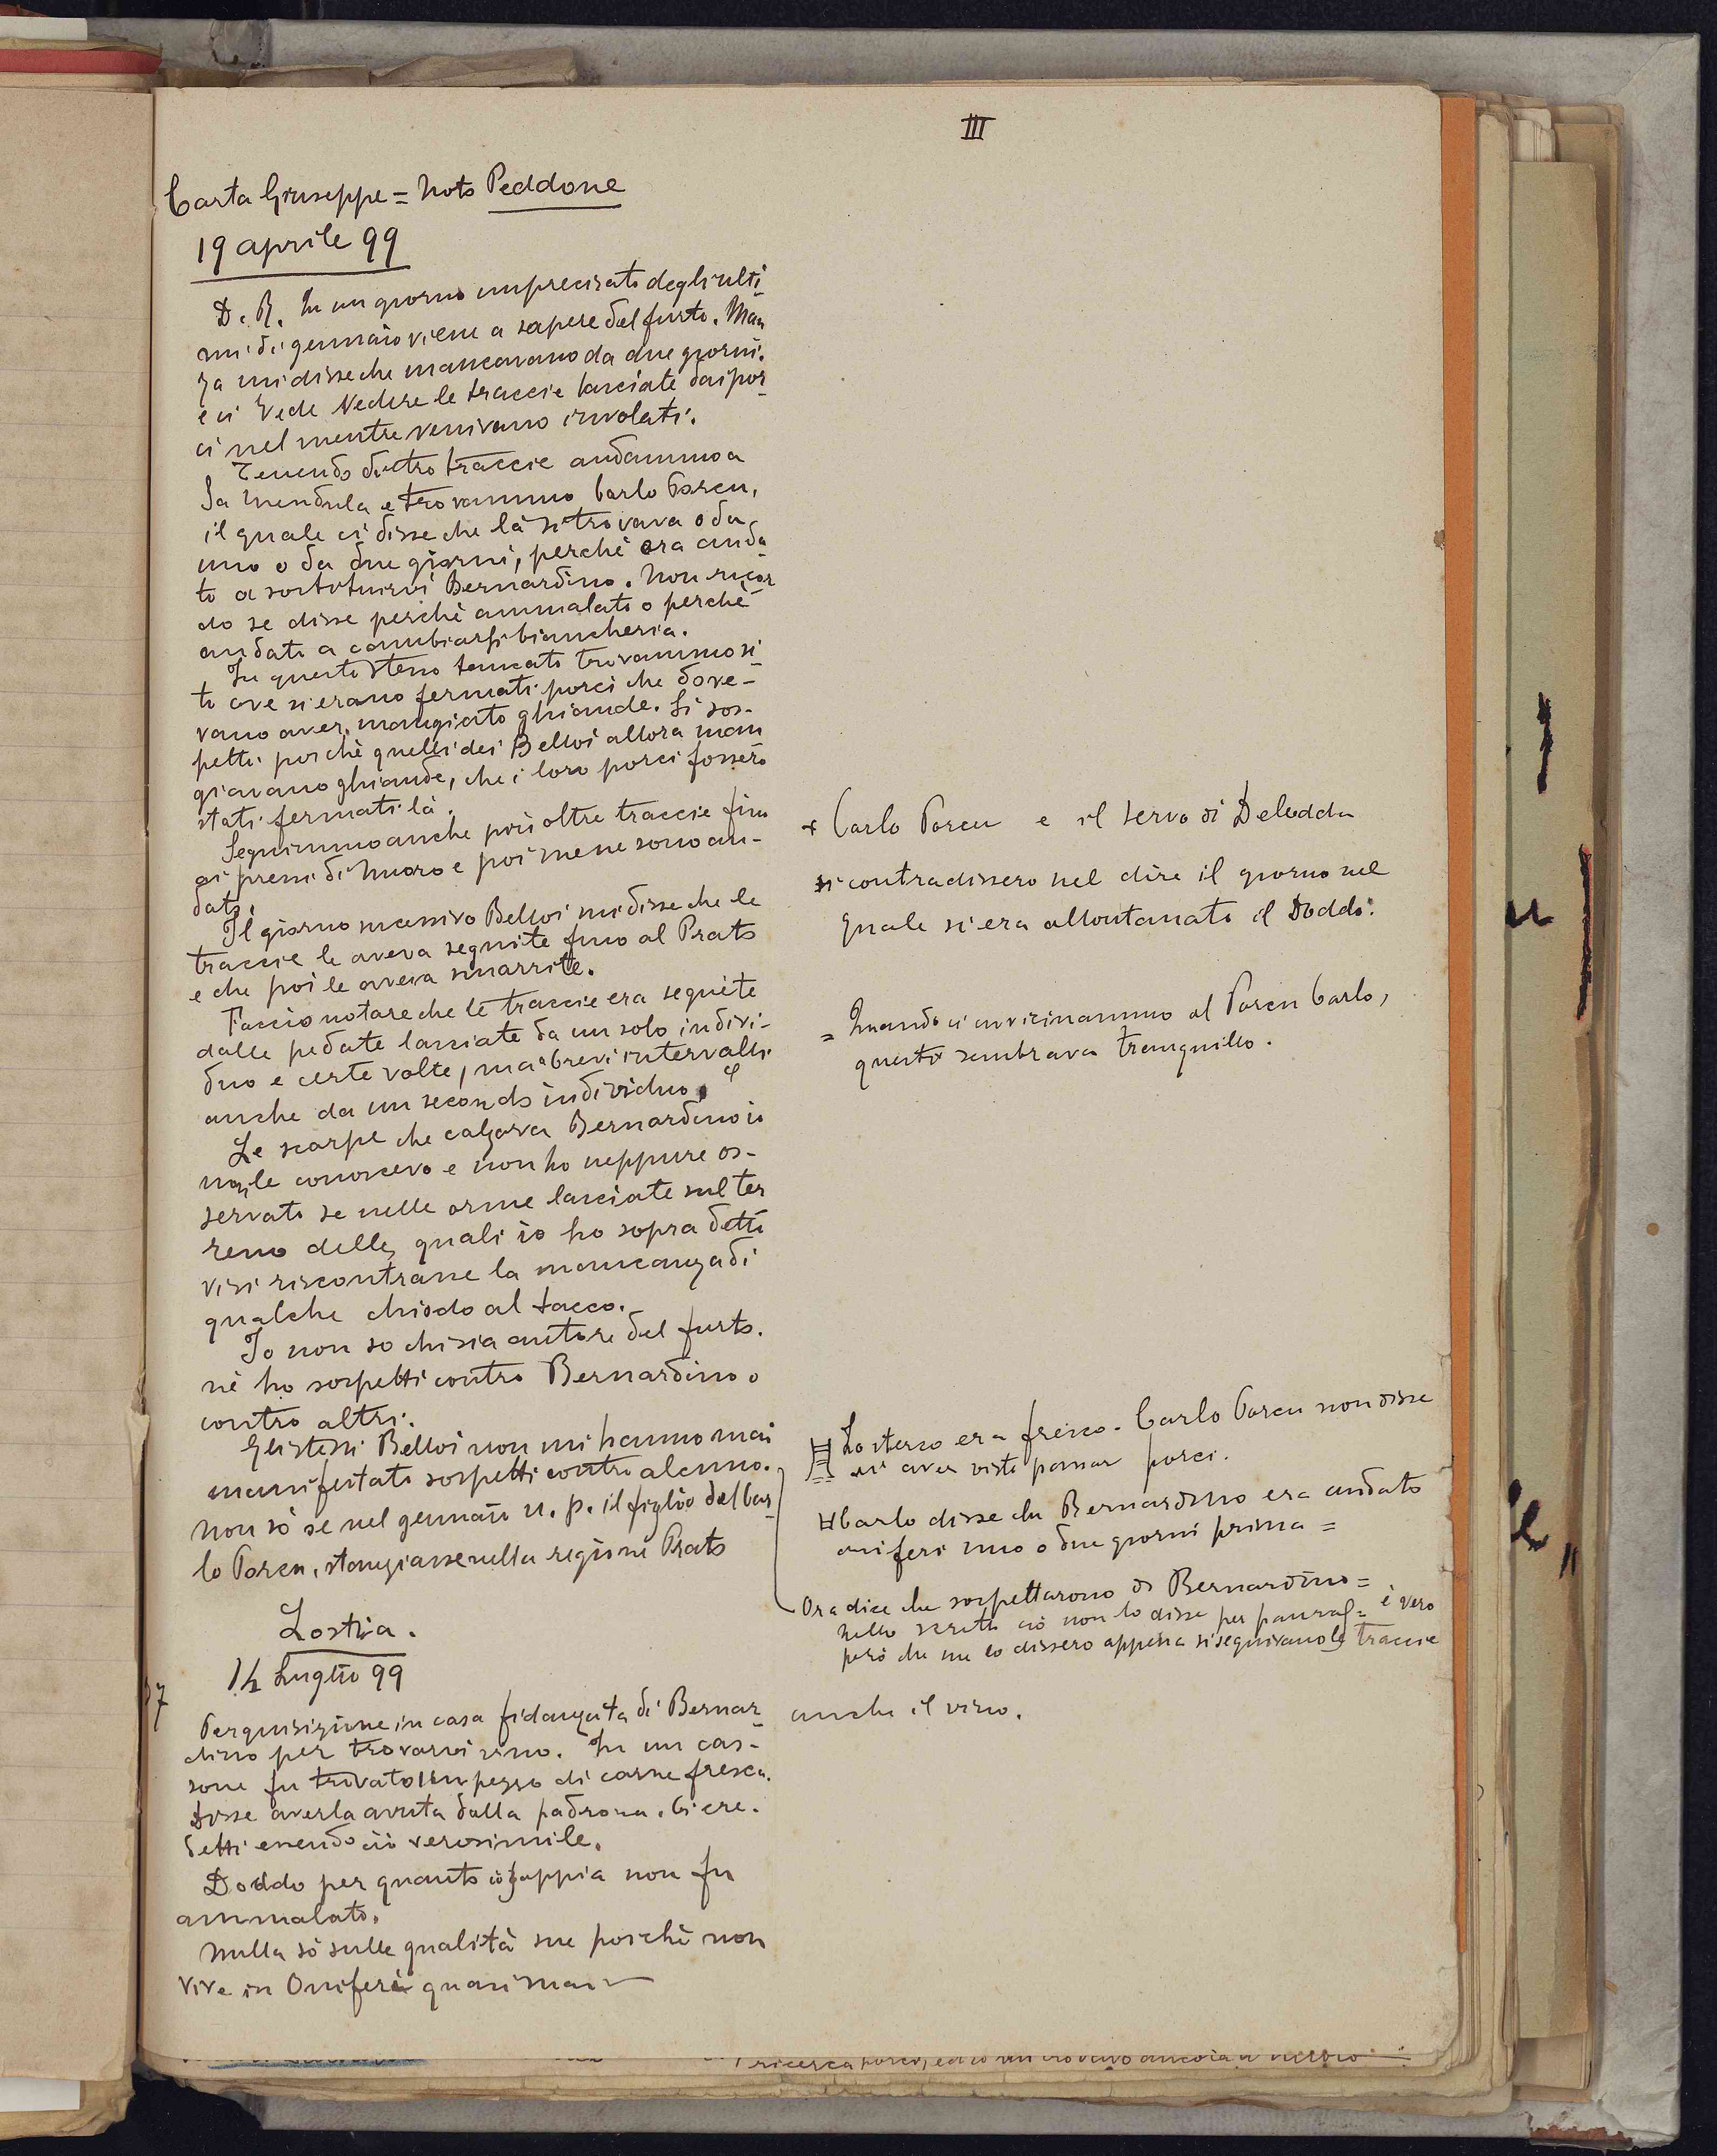 III
Carta Giuseppe = noto Peddone
19 aprile 99
D. R. In un giorno imprecisato degli ulti-
mi di gennaio viene a sapere del furto. Man
za mi disse che mancavano da due giorni.
e ci vede vedere le traccie lasciate dai por-
ci nel mentre venivano involati.
Tenendo dietro traccie andammo a
Sa Mendula e trovammo Carlo Porcu,
il quale ci disse che là si trovava o da
uno o da due giorni, perchè era anda-
to a sostituirvi Bernardino. Non ricor-
do se disse perchè ammalato o perchè
andato a cambiarsi biancheria.
In questo stesso tancato trovammo si-
to ove si erano fermati porci che dove-
vano aver mangiato ghiande. Si sos-
pettò poichè quelli dei Belloi allora man
giavano ghiande, che i loro porci fossero
stati fermati là.
Seguimmo anche più oltre traccie fino
ai pressi di Nuoro e poi me ne sono an-
dato.
Il giorno successivo Belloi mi disse che le
traccie le aveva seguite fino al Prato
e che poi le aveva smarrite.
Faccio notare che le traccie era seguite
dalle pedate lasciate da un solo indivi-
duo e certe volte, ma a brevi intervalli
anche da un secondo individuo.
Le scarpe che calzava Bernardino io
non le conoscevo e non ho neppure os-
servato se nelle orme lasciate sul ter
reno delle quali io ho sopra detto
vi si riscontrasse la mancanza di
qualche chiodo al tacco.
Io non so chi sia autore del furto.
nè ho sospetti contro Bernardino o
contro altri.
Gli stessi Belloi non mi hanno mai
manifestato sospetti contro alcuno.
Non sò se nel gennaio u. p. il figlio del Car-
lo Porcu, stanziasse nella regione Prato
Lostia.
14 Luglio 99
37
Perquisizione in casa fidanzata di Bernar-
dino per trovarvi vino. In un cas-
sone fu trovato un pezzo di carne fresca.
Disse averla avuta dalla padrona. Ci cre-
detti essendo ciò verosimile.
Doddo per quanto io sappia non fu
ammalato.
Nulla sò sulle qualità sue poichè non
vive in Oniferi quasi mai
+ Carlo Porcu e il servo di Deledda
si contradissero nel dire il giorno nel
quale si era allontanato il Doddo.
= Quando ci avvicinammo al Porcu Carlo,
questo sembrava tranquillo.
Lo sterco era fresco. Carlo Porcu non disse
di aver visto passar porci.
Carlo disse che Bernardino era andato
oniferi uno o due giorni prima =
Ora dice che sospettarono di Bernardino =
nello scritto ciò non lo disse per paura = è vero
però che me lo dissero appena si seguivano le traccie
anche il vino.